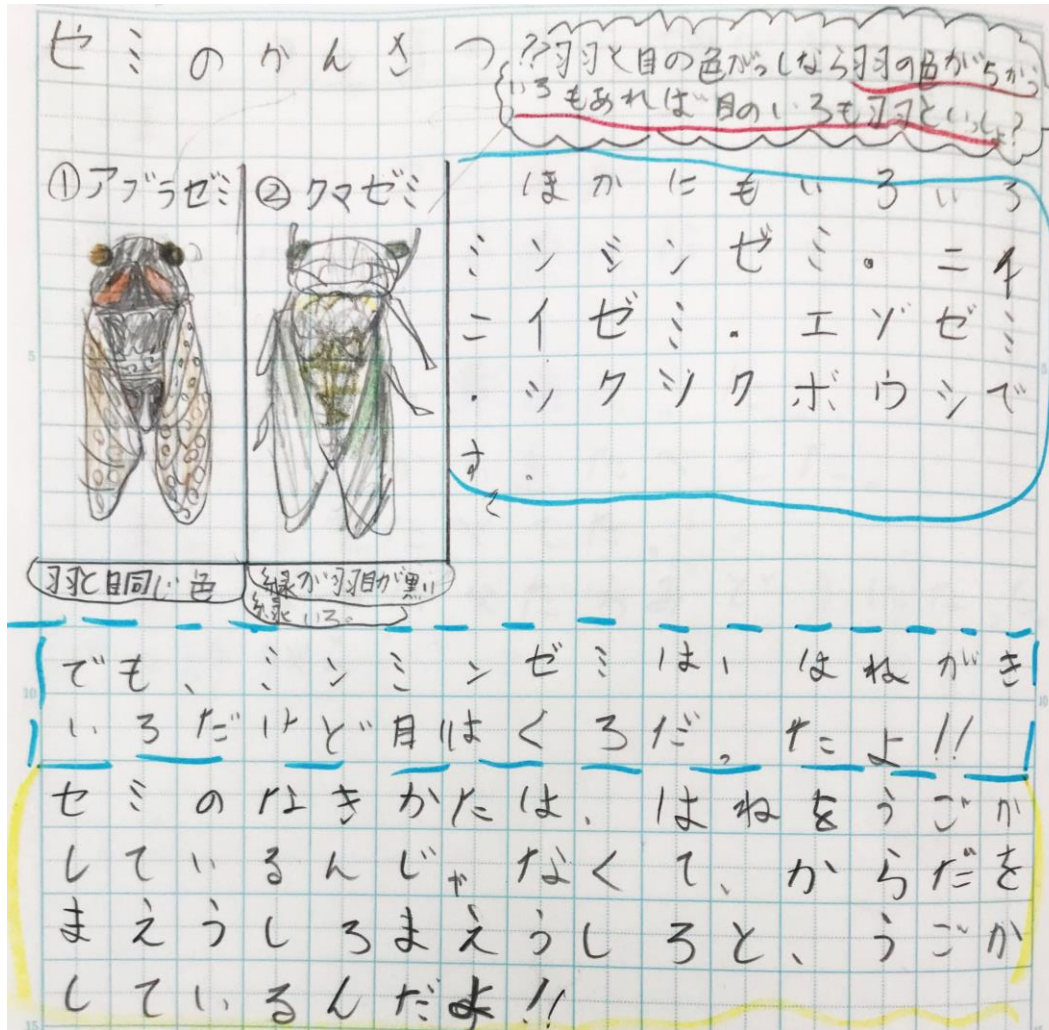 ゼミのかんさつ
??羽と目の色がっしなら羽の色がちがっ
いろもあれば目のいろも羽といっしょ?
①アブラゼミ
②クマゼミ
羽と目同じ色
緑が羽目が黒い
緑いろ。
ほかにもいろいろ
ミンミンゼミ・ニイ
ニイゼミ・エゾゼミ
・ツクツクボウシで
す。
でも、ミンミンゼミは、はねがき
いろだけど目はくろだったよ!!
セミのなきかたは、はねをうごか
しているんじゃなくて、からだを
まえうしろまえうしろと、うごか
しているんだよ!!